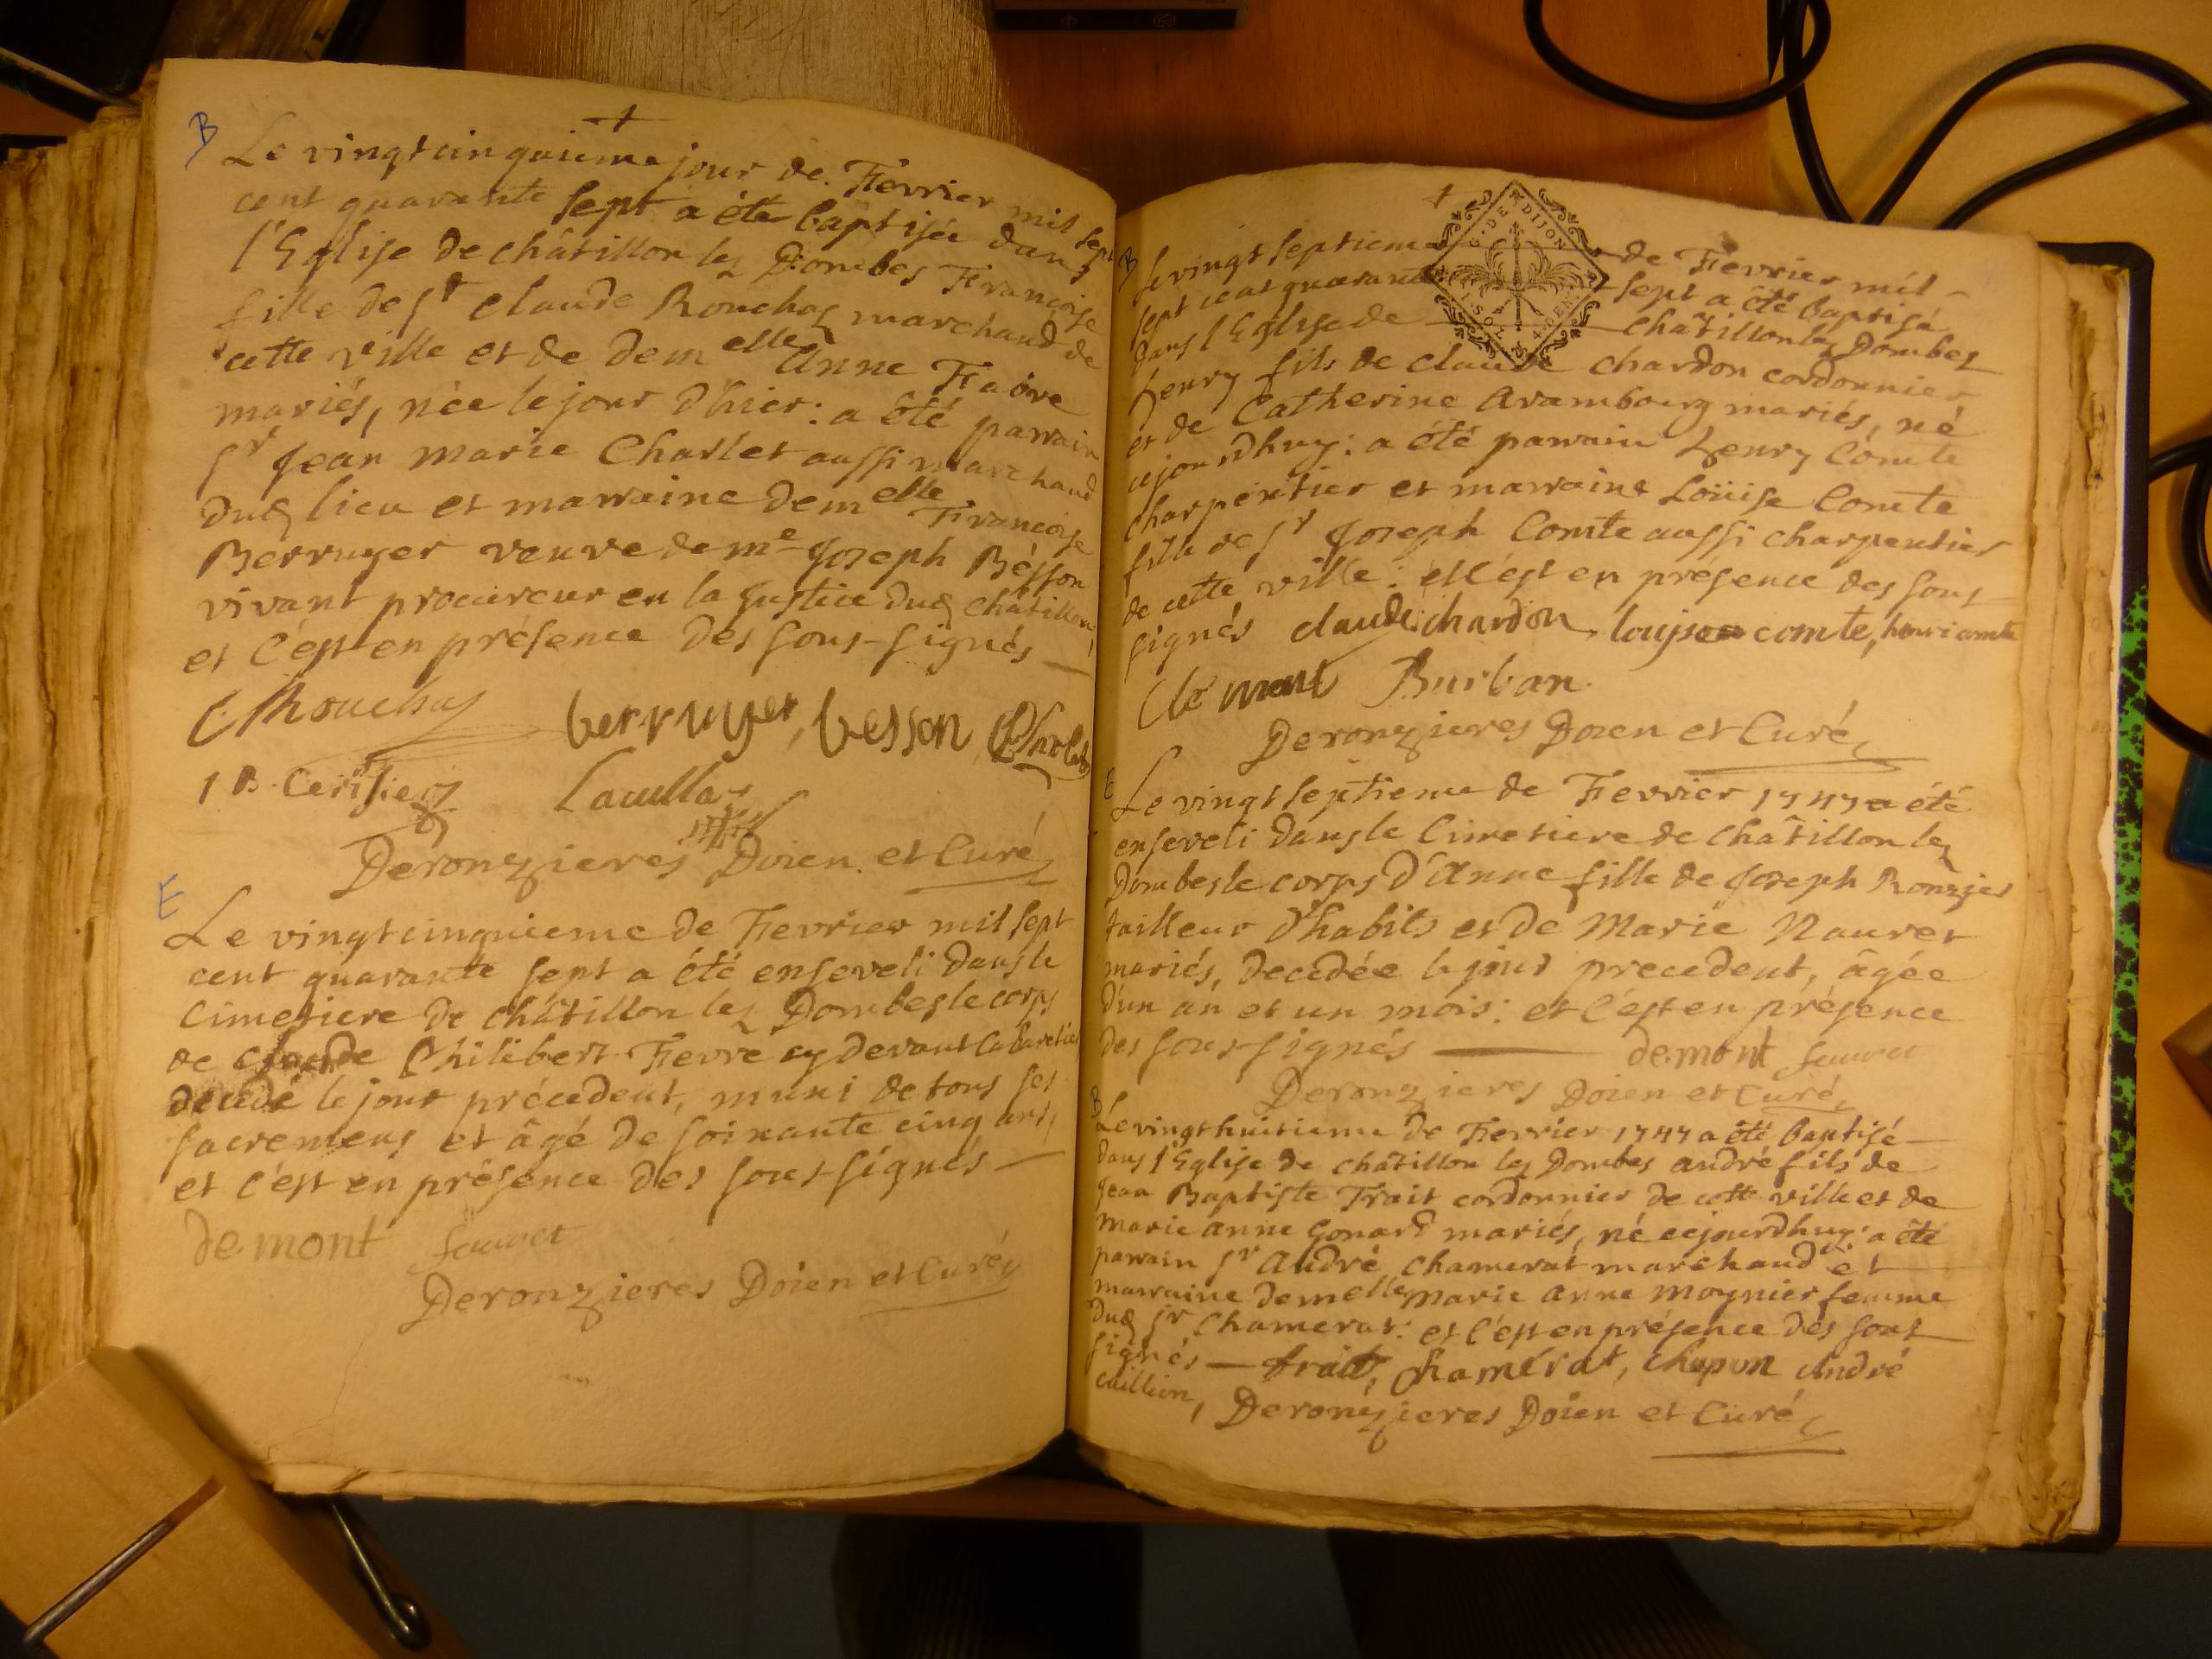 B
Le vingtcinquieme jour de Fevrier mil sept
cent quarante sept a été baptisée dans
l'Eglise de châtillon lez Dombes Françoise
fille de Sr Claude Rouchaz marchand de
cette ville et de demelle Anne Favre
mariés, née le jour d'hier: a été parrain
Sr Jean Marie Charlet aussi marchand
dud lieu et marraine demelle Françoise
Berruyer veuve de me Joseph Bésson
vivant procureur en la justice dud châtillon;
et c'est en présence des sous-signés
berruyer, besson, Charlet
Deronzieres Doien et Curé
E
Le vingtcinquieme de Fevrier mil sept
cent quarante sept a été enseveli dans le
Cimetiere de châtillon lez Dombes le corps
de Claude Philibert Fievre cy devant Cabaretier
decedé le jour précedent, muni de tous ses
sacremens et âgé de soixante cinq ans,
et c'est en présence des sous-signés
demont sauvet
Deronzieres Doien et Curé
G. DE DIJON
B
Le vingt septieme de Fevrier mil
sept cent quarante sept a été baptisé
dans l'Eglise de châtillon lez Dombes
henry fils de claude chardon cordonnier
et de Catherine Arambourg mariés, né
cejourdhuy: a été parrain henry Comte
charpentier et marraine Loüise Comte
fille de Sr Joseph Comte aussi charpentier
de cette ville: et c'est en présence des sous
signés claude chardon, comte, henri comte
Clément Burban
Deronzieres Doien et Curé
E
Le vingt septieme de Fevrier 1747 a été
enseveli dans le Cimetiere de châtillon lez
Dombes le corps d'Anne fille de Joseph Ronzies
tailleur d'habits et de Marie Nauret
mariés, decedée le jour precedent, âgée
d'un an et un mois: et c'est en présence
des sous-signés demont sauvet
Deronzieres Doien et Curé
B
Le vingthuitieme de Fevrier 1747 a été baptisé
dans l'Eglise de châtillon lez Dombes andré fils de
Jean Baptiste Trait cordonnier de cette ville et de
marie anne Gonard mariés, né cejourdhuy: a été
parrain Sr André Chamerat marchand et
marraine demelle marie anne moynier femme
dud Sr Chamerat: et c'est en présence des sous
signés trait, chamerat, chapon André
cuillion, Deronzieres Doien et Curé